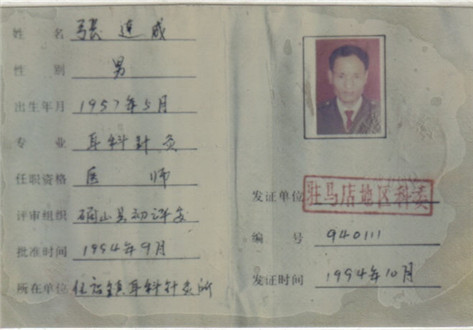 姓名 张连成
性别 男
出生年月 1957年5月
专业 耳科针灸
任职资格 医师
评审组织 确山县初评委
批准时间 1994年9月
所在单位 镇耳科针灸所
发证单位 驻马店地区科委
编号 940111
发证时间 1994年10月